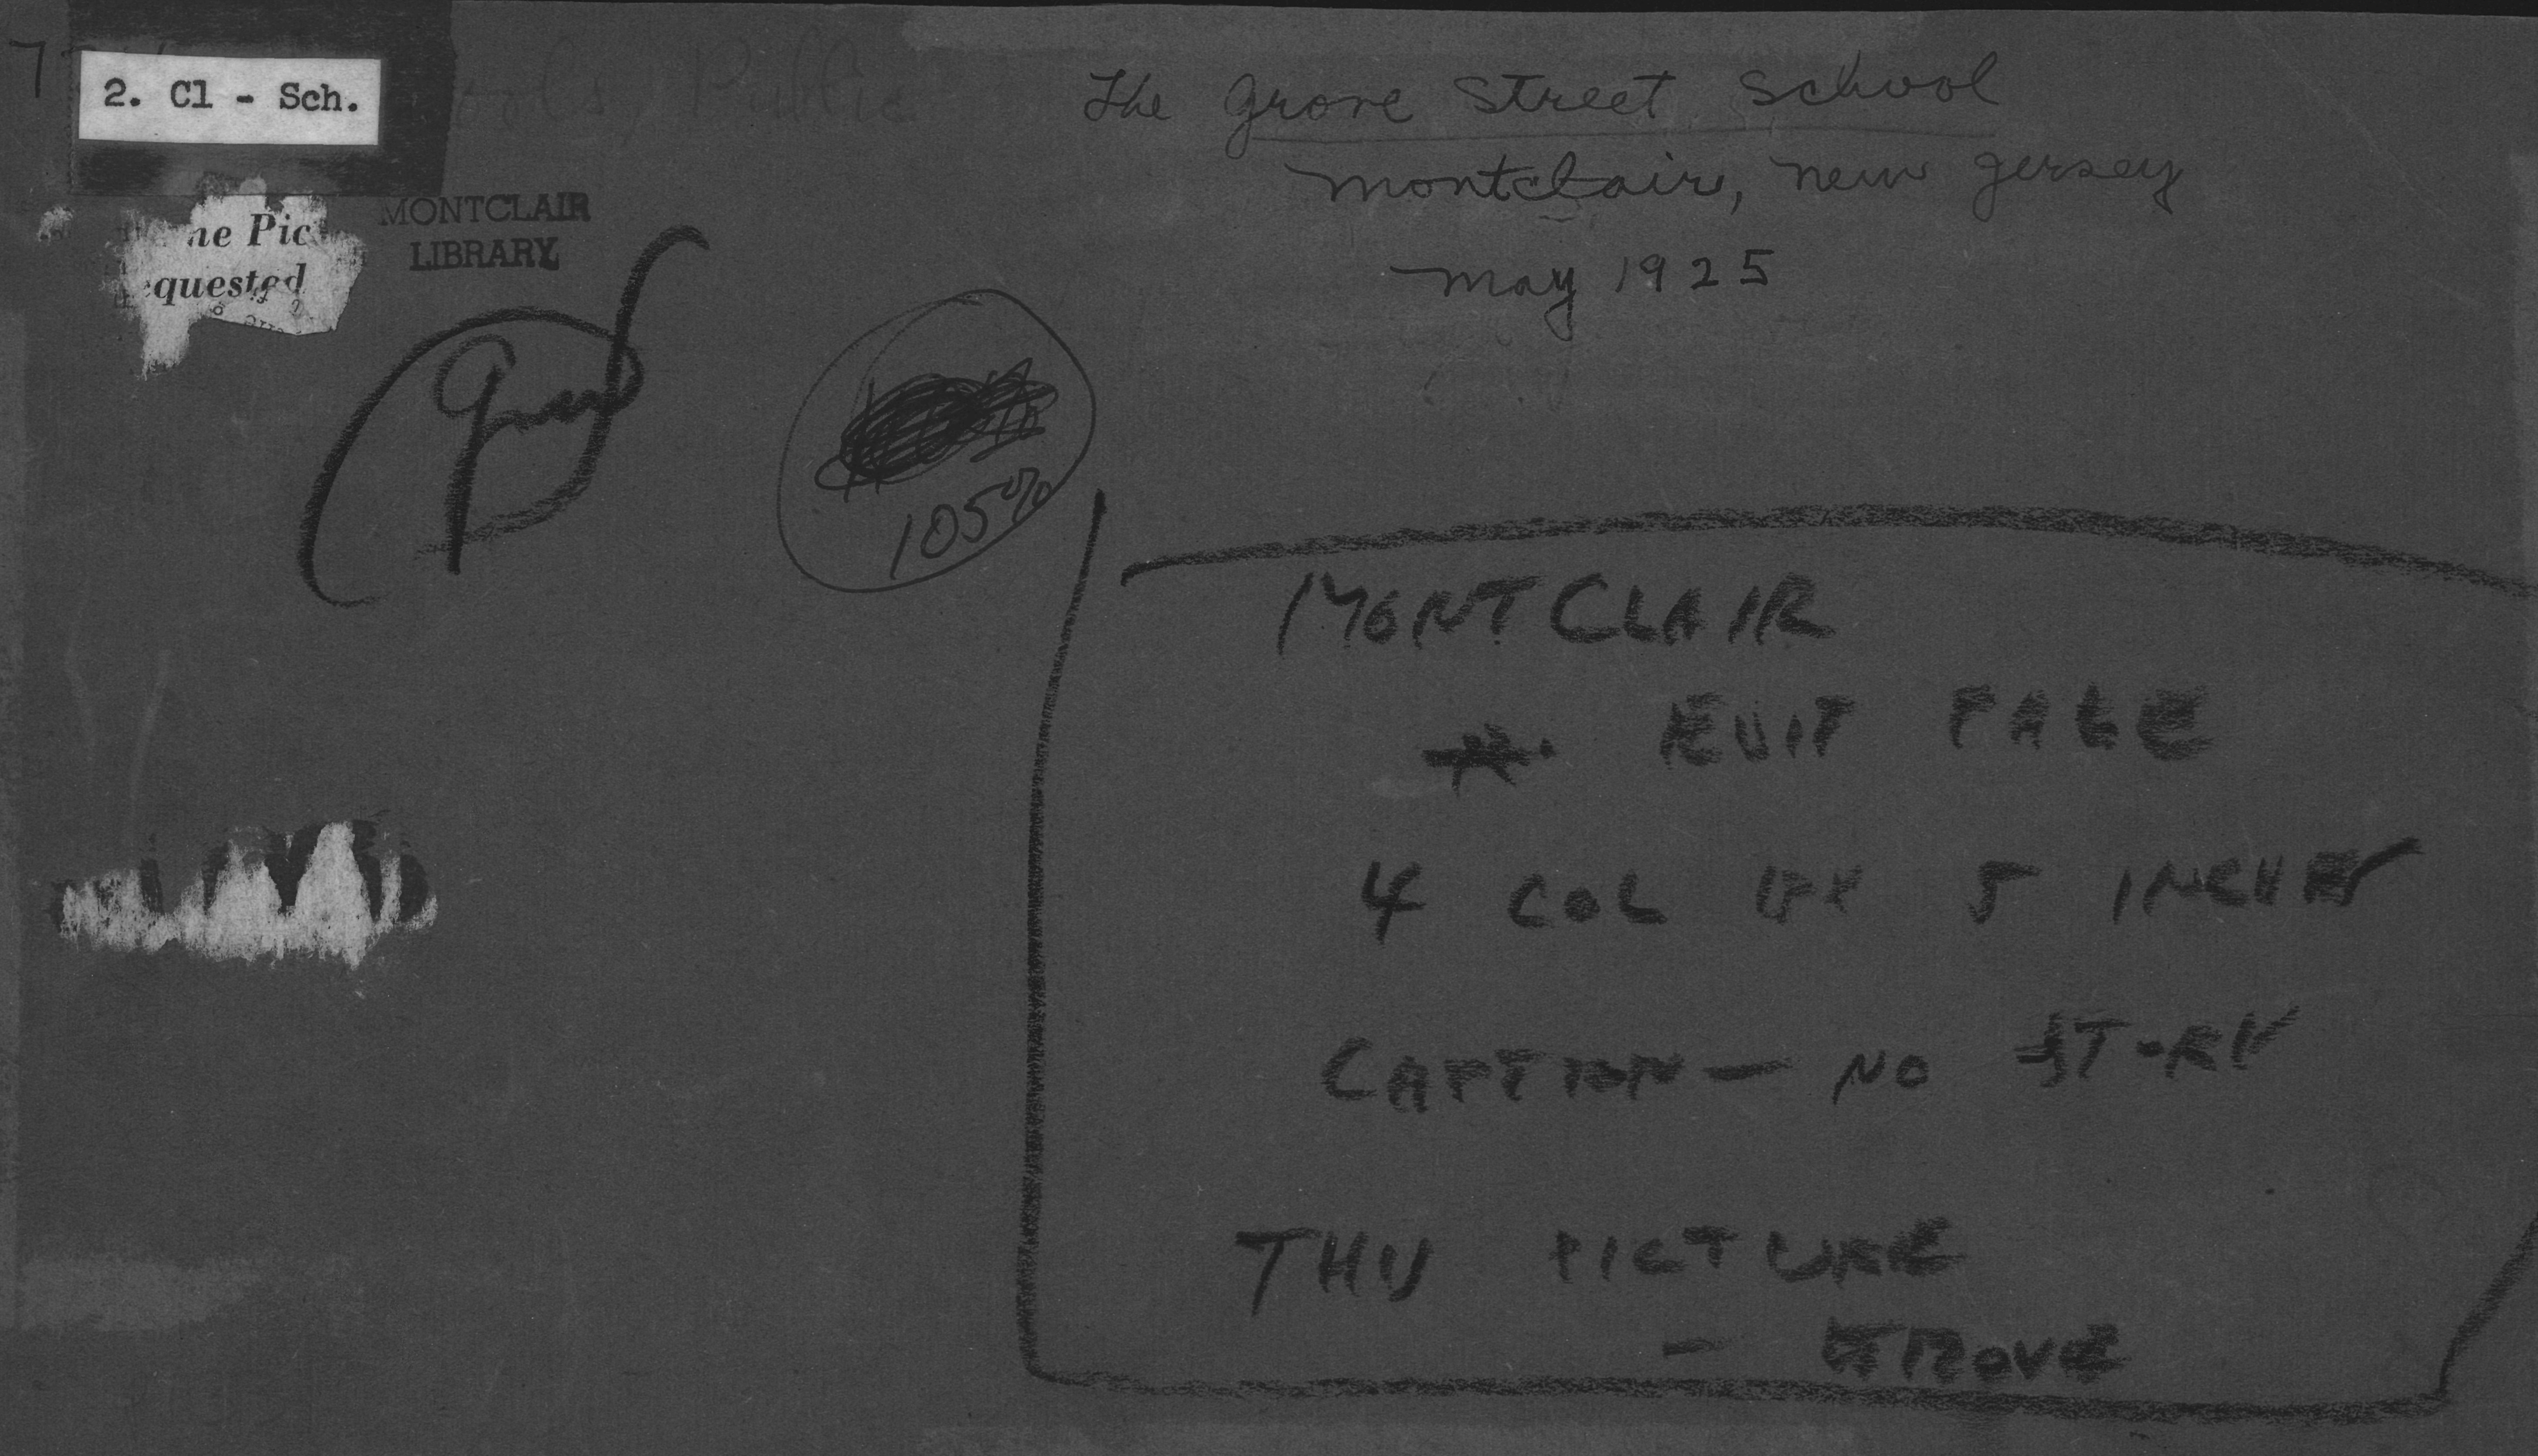 2. Cl - Sch.
Public
The Grove Street School
Montclair, New Jersey
May 1925
MONTCLAIR
LIBRARY
ne Pic
equested
105%
MONTCLAIR
EDIT PAGE
4 COL BY 5 INCHES
CAPTION — NO STORY
THIS PICTURE
—